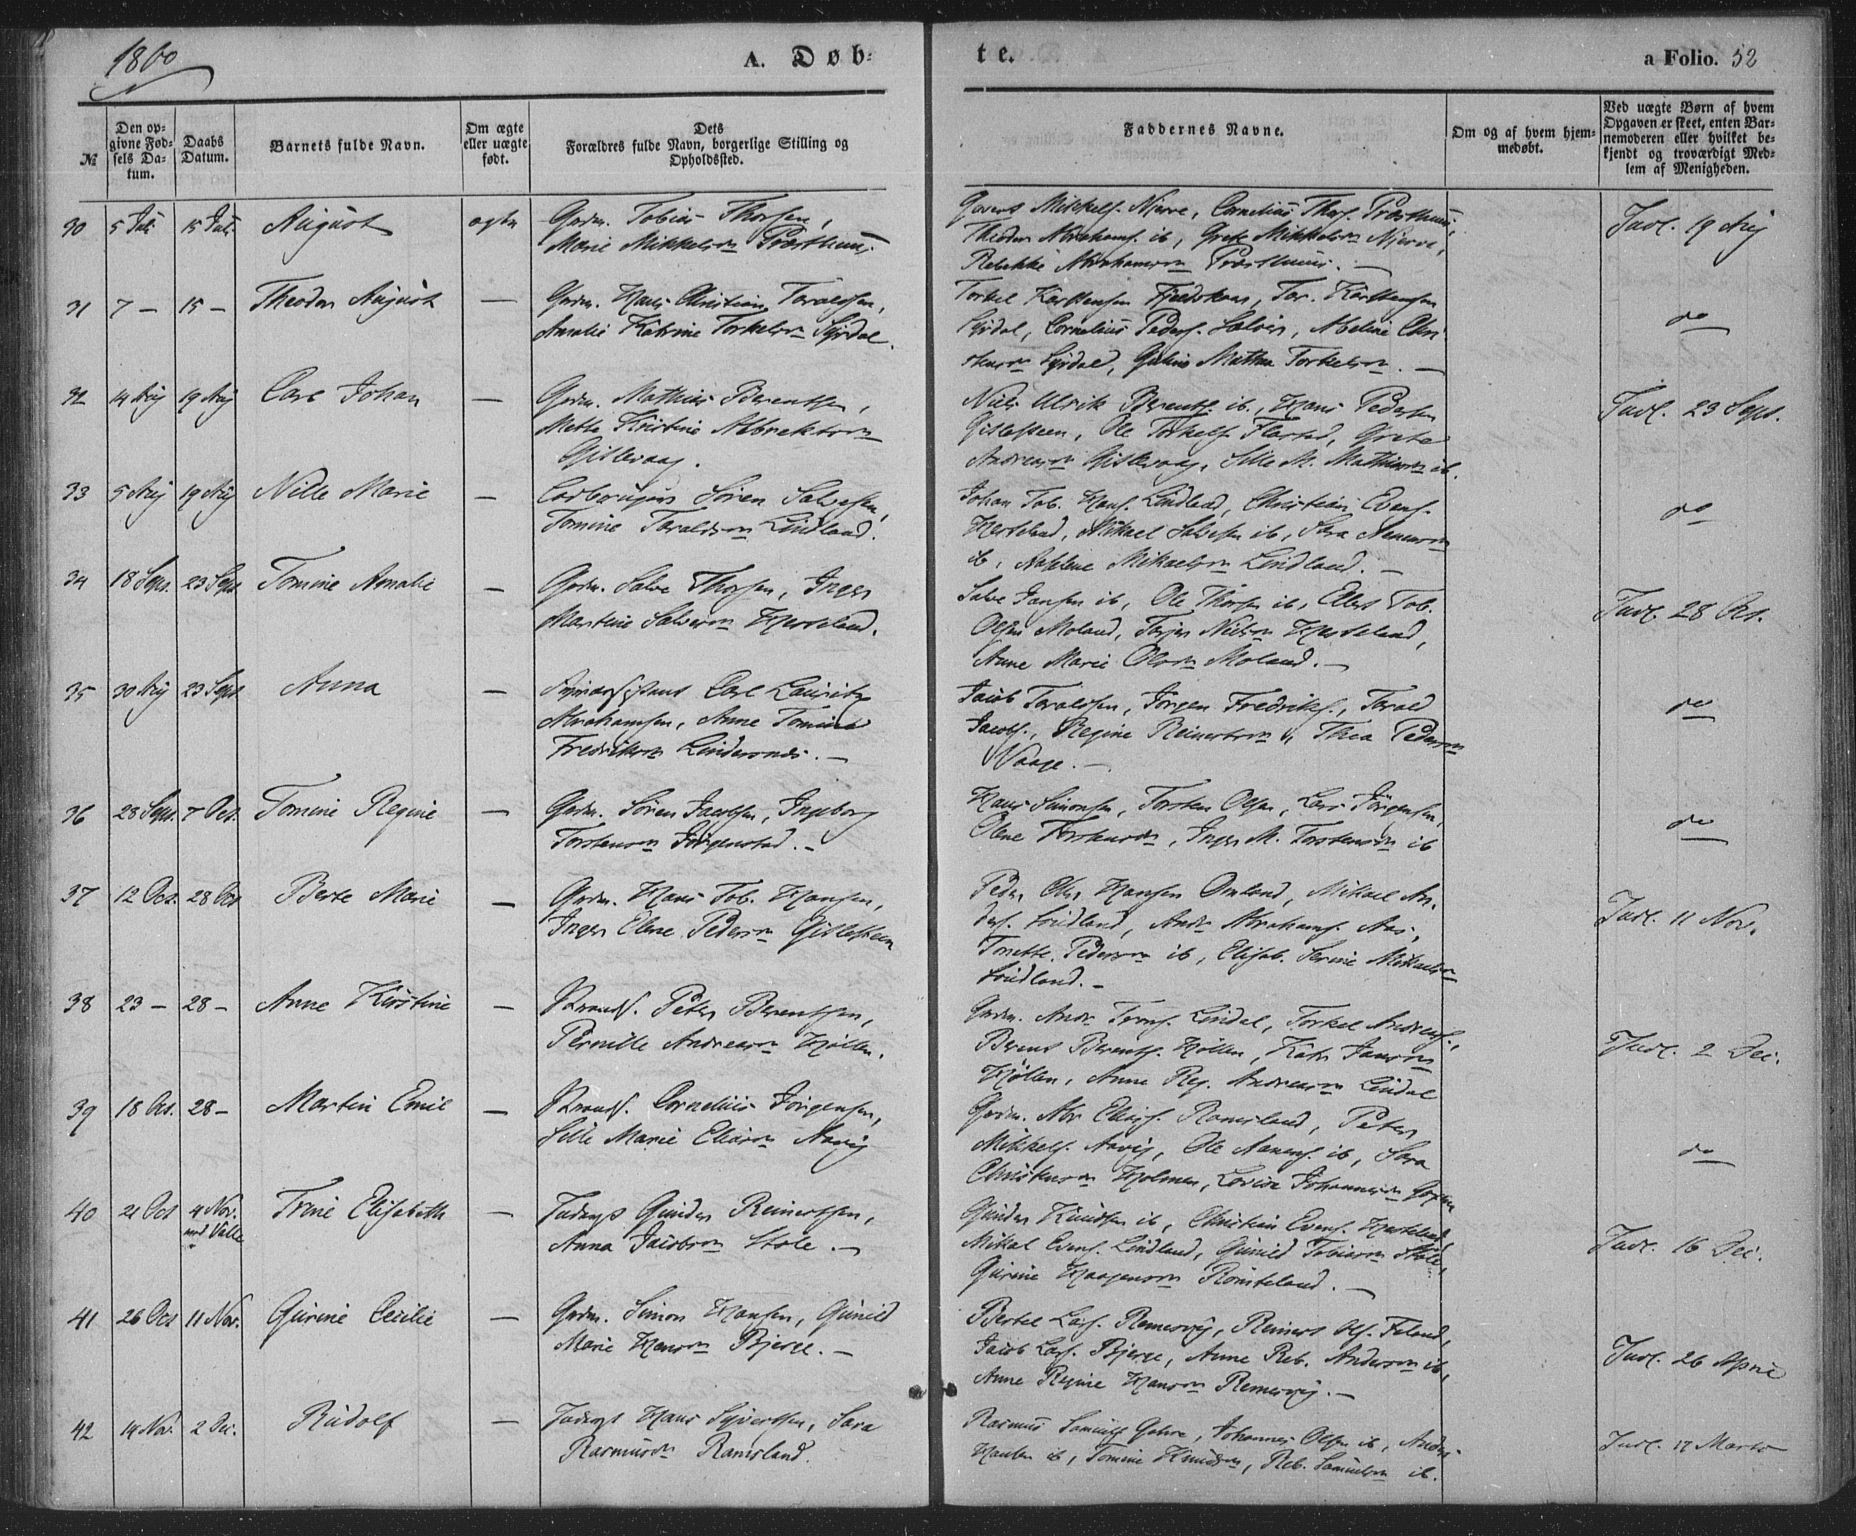 1860
A. Døb-
te.
a Folio. 52
№
Den op-
givne Fød-
sels Da-
tum.
Daabs
Datum.
Barnets fulde Navn.
Om ægte
eller uægte
født.
Dets
Forældres fulde Navn, borgerlige Stilling og
Opholdssted.
Faddernes Navne.
Om og af hvem hjem-
medøbt.
Ved uægte Børn af hvem
Opgaven er skeet, enten Bar-
nemoderen eller hvilket be-
kjendt og troværdigt Med-
lem af Menigheden.
30 5 Juli 15 Juli August ægte Grdm. Tobias Thorsen,
Marie Mikkelsdn Præsthuus.
Govert Mikkels. Njerve, Cornelius Thors. Præsthuus,
Theodor Abrahams. ib, Grete Mikkelsdn Njerve,
Rebekke Abrahamsdn Præsthuus. —
Indl. 19 Aug
31 7 — 15 — Theodor August — Grdm. Hans Christian Taraldsen,
Amalie Katrine Torkelsdn Syrdal.
Torkel Karstensen Fjeldskaar, Tor. Karstensen
Syrdal, Cornelius Peders. Abeline Chri-
stensdn Syrdal, Mathea Torkelsdn. —
do
32 14 Aug 19 Aug Carl Johan — Grdm. Mathias Berentsen,
Mette Kristine Albrektsdn
Gislevaag.
Niels Ulrik Berents. ib., Hans Pedersen
Gisleheen, Ole Torkels. Flastad, Grete
Andreasdn Gislevaag, Sille M. Mathiasdn ib.
Indl. 23 Sept.
33 5 Aug 19 Aug Nille Marie — Søren Salvesen,
Tomine Taraldsdn Lindland.
Johan Tob. Hans. Lindland, Christian Evens.
Hesteland, Mikael Salvesen ib, Sara
ib, Mikaelsdn Lindland. —
do
34 18 Sept. 23 Sept Tomine Amalie — Grdm. Salve Thorsen, Inger
Martine Salvesdn Hesteland.
Salve Jansen ib, Ole Thorsen ib, Ellert Tob.
Olsen Moland, Nielsdn Hesteland,
Anne Marie Olsdn Moland. —
Indl. 28 Oct.
35 30 Aug 23 Sept Anna — Carl Lauritz
Abrahamsen, Anne Tomine
Fredriksdn Lindesnes. —
Jacob Taraldsen, Jørgen Fredriks., Tarald
Jacobs., Regine Reinertsdn, Thea Pedersdn
Vaage. —
do
36 28 Sept. 7 Oct. Tomine Regine — Grdm. Søren Jacobsen, Ingeborg
Torstensdn Jørgenstad. —
Hans Simonsen, Torsten Olsen, Lars Jörgensen,
Olene Torstensdn, Inger M. Torstensdn ib
do
37 12 Oct. 28 Oct Berte Marie — Grdm. Hans Tob. Hansen,
Inger Elene Pedersdn Gisleheen
Peder Hansen Omland, Mikael An-
ders. Lindland, Andr. Abrahams. Aas,
Tonette Pedersdn ib, Elisab. Serine Mikaelsdn
Lindland. —
Indl. 11 Nov.
38 23 — 28 — Anne Kirstine — Strands. Peter Berentsen,
Pernille Andreasdn Hjøllen.
Grdm. Andr. Lindal, Torkel Andreas.,
Berent Berents. Hjøllen, Jansdn
Hjøllen, Anne Reg. Andreasdn Lindal
Indl. 2 Dec.
39 18 Oct. 28 — Martin Emil — Strands. Cornelius Jörgensen,
Sille Marie Eliasdn Aavig
Grdm. Abr. Elias. Ramsland, Peter
Mikkels. Aavig, Ole Aanens. ib, Sara
Christensdn Holmen, Lovise Johannesdn
do
40 21 Oct 4 Nov. Trine Elisabeth — Gunder Reinertsen,
ved Valle
Anna Jacobsdn Stole. —
Gunder Knudsen ib, Christian Evens. Hesteland,
Mikal Evens. Lindland, Gunild Tobiasdn Stole,
Gurine Haagensdn Rømteland. —
Indl. 16 Dec.
41 26 Oct 11 Nov. Gurine Cecilie — Grdm. Simon Hansen, Gunild
Marie Hansdn Bjerge. —
Bertel Lars. Remesvig, Reinert Ols. Faland,
Jacob Lars. Bjerge, Anne Reb. Andersdn ib,
Anne Regine Hansdn Remesvig. —
Indl. 26 April
42 14 Nov. 2 Dec. Rudolf — Hans Syvertsen, Sara
Rasmusdn Ramsland.
Rasmus Samuels. Gahre, Johannes Olsen ib, Anders
ib, Tomine Knudsdn, Reb. Samuelsdn ib.
Indl. 17 Marts